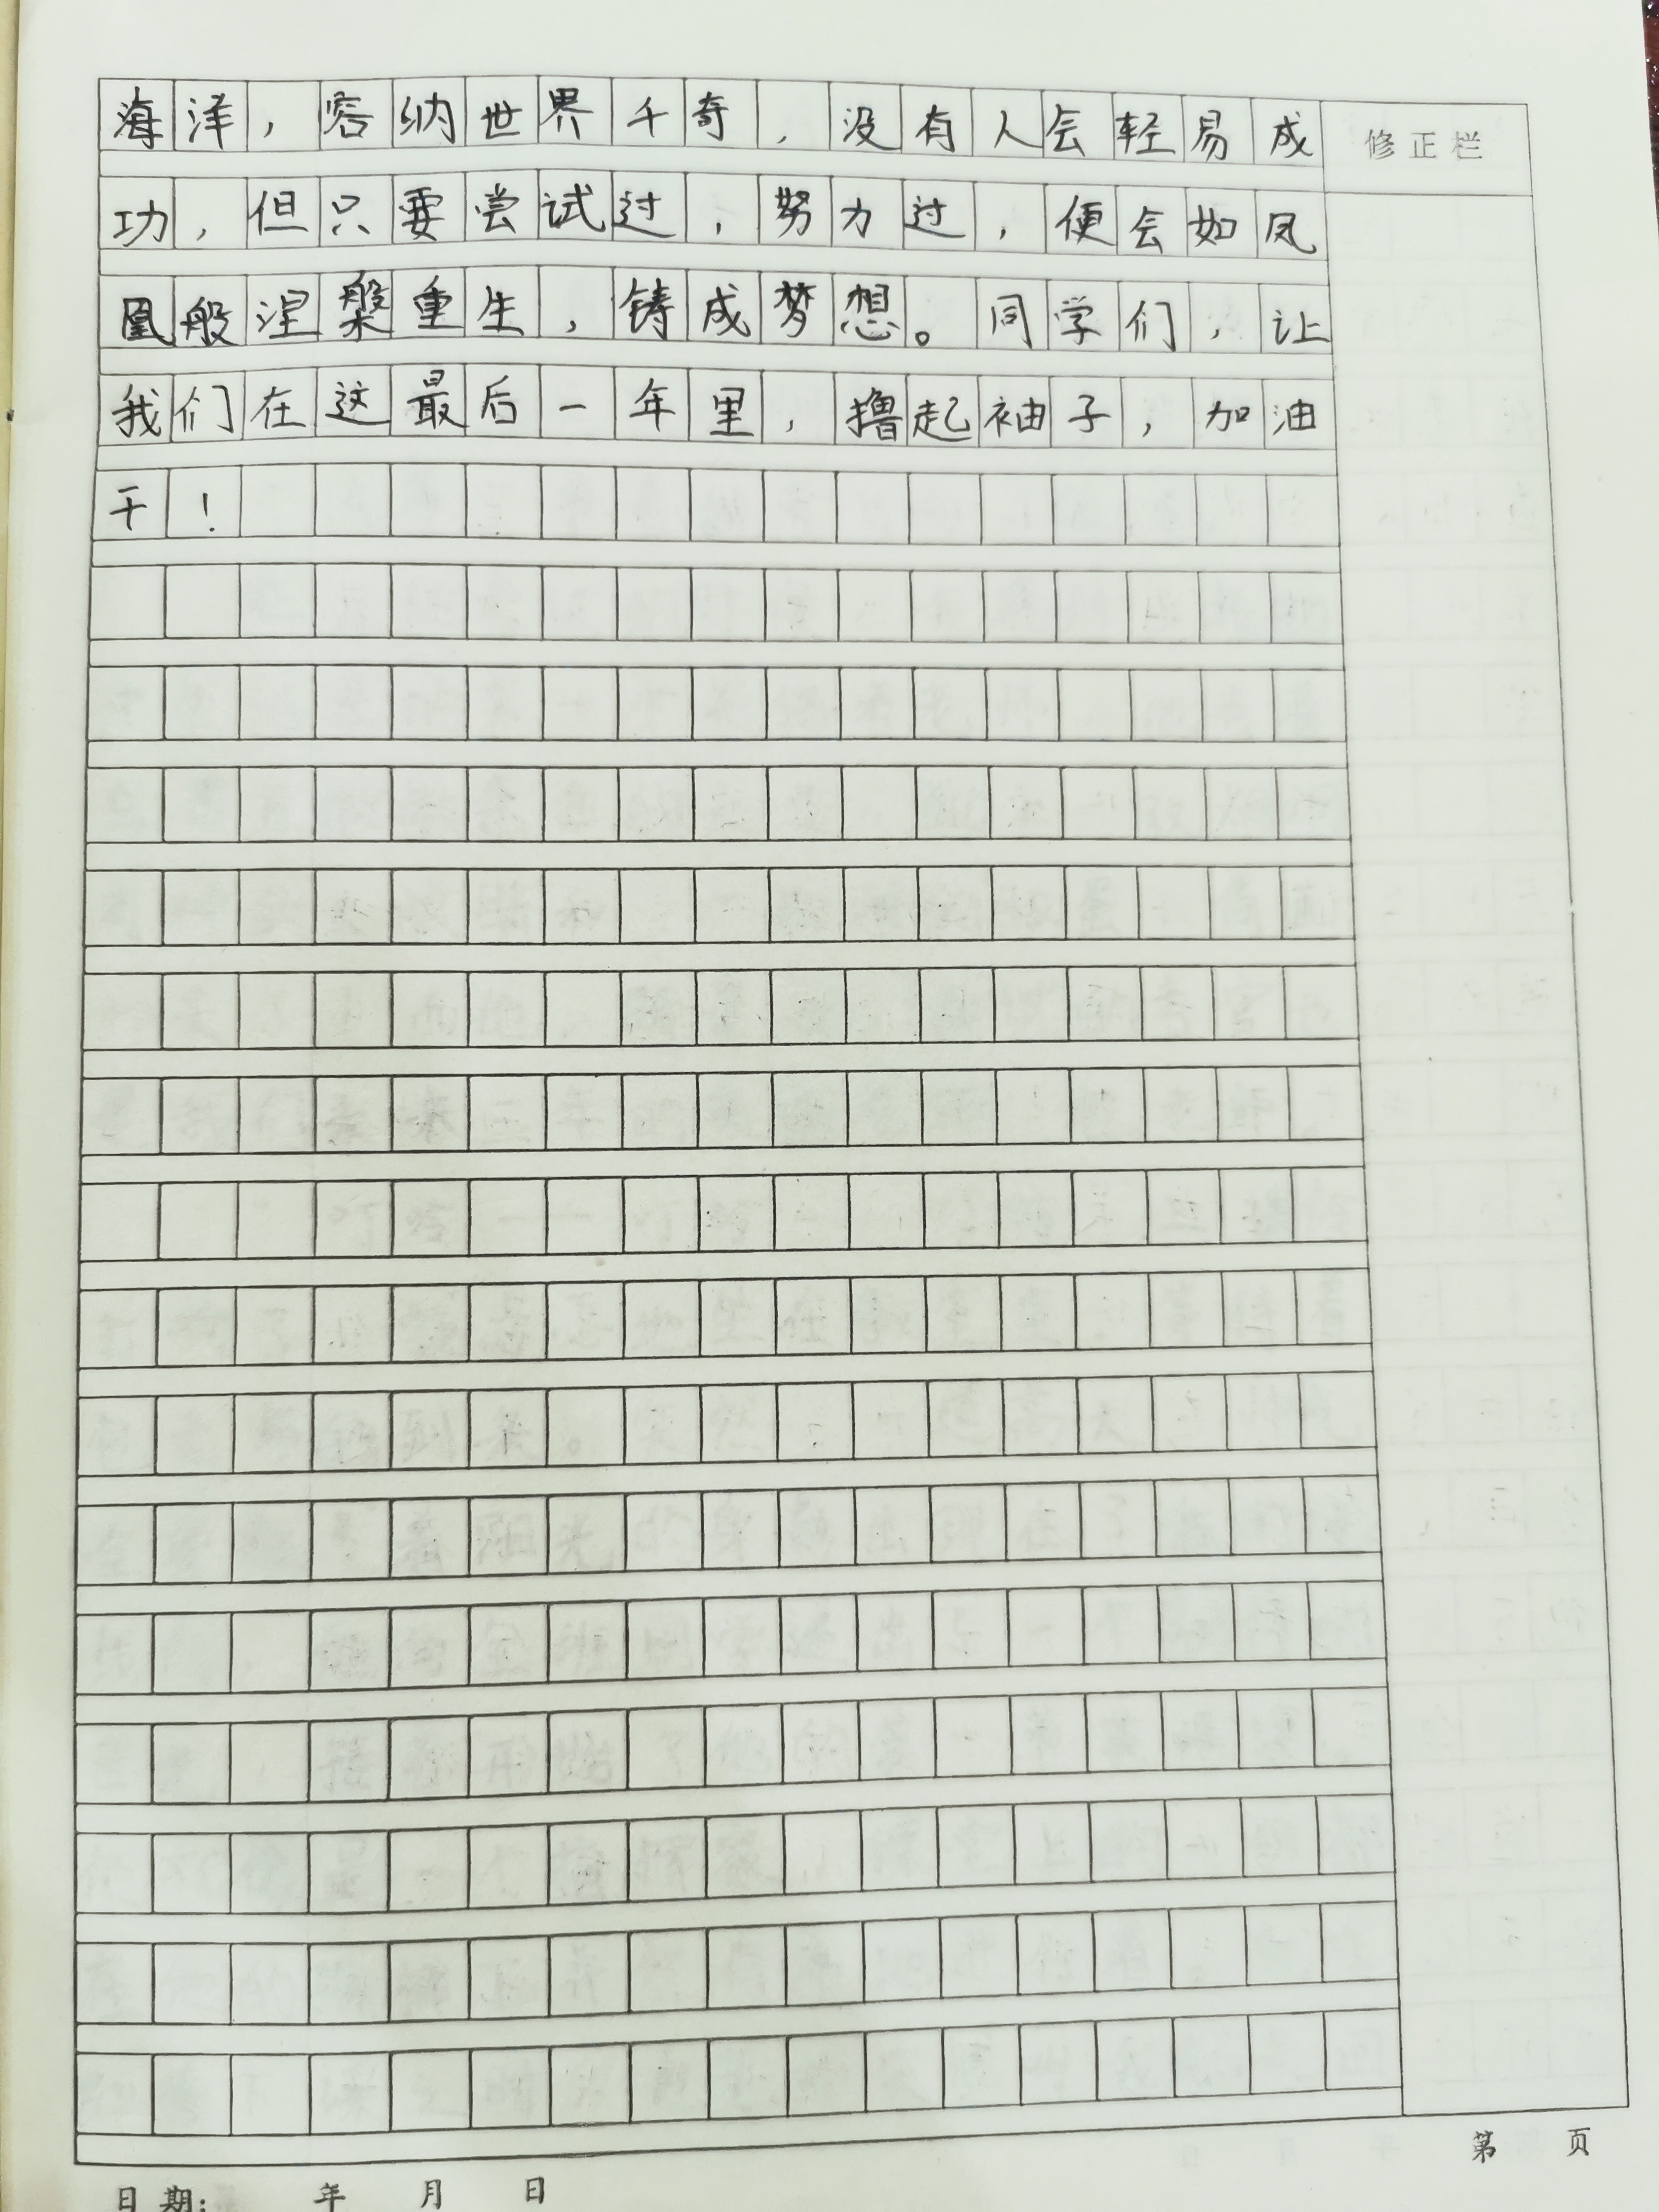 海洋，容纳世界千奇，没有人会轻易成
修正栏
功，但只要尝试过，努力过，便会如凤
凰般涅槃重生，铸成梦想。同学们，让
我们在这最后一年里，撸起袖子，加油
干！
第 页
日期： 年 月 日